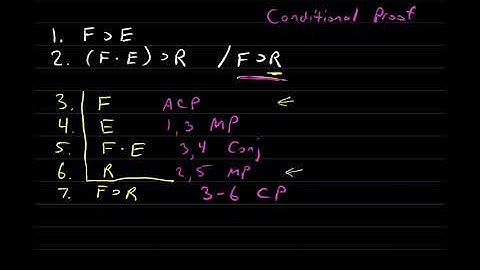 Conditional Proof
1. F ⊃ E
2. (F · E) ⊃ R / F ⊃ R
3. F ACP ←
4. E 1,3 MP
5. F · E 3,4 Conj
6. R 2,5 MP ←
7. F ⊃ R 3-6 CP